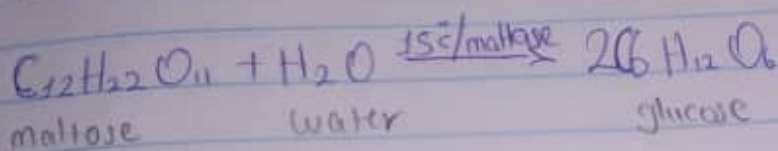 C₁₂H₂₂O₁₁ + H₂O 15°c/maltase → 2C₆H₁₂O₆
maltose water glucose